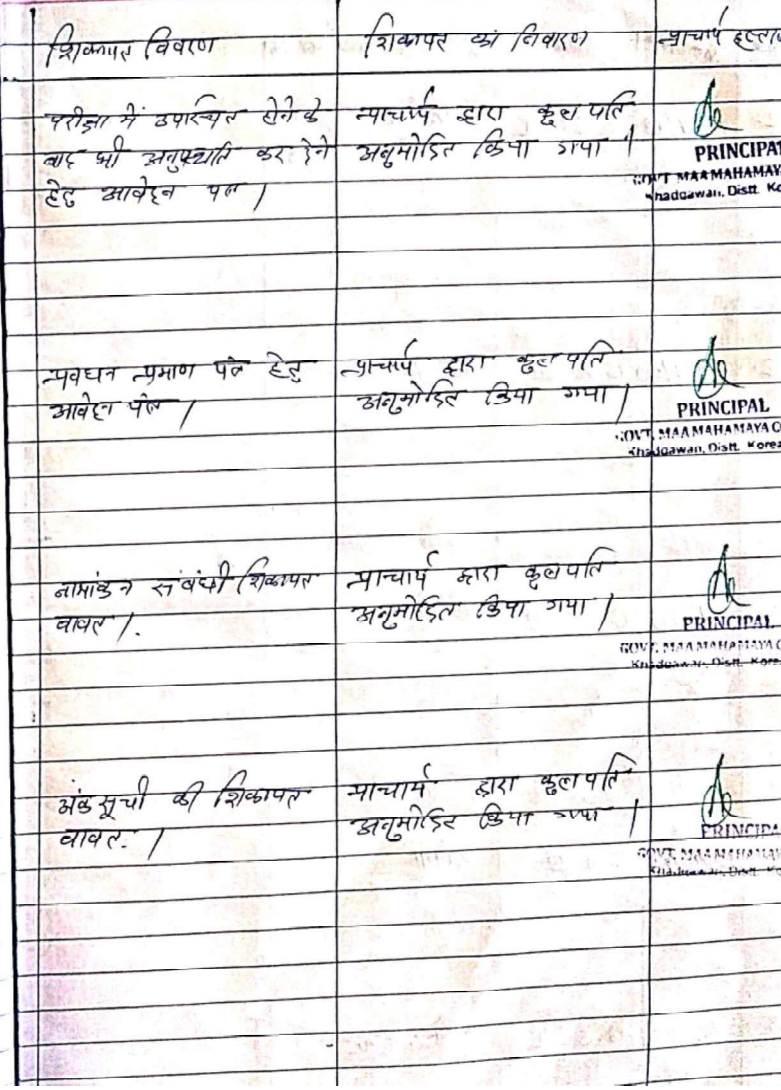 शिकायत विवरण
शिकायत का निवारण
प्राचार्य
परीक्षा में उपास्थित होने के
बाद भी अनुपस्थति कर देने
हेतु आवेदन पत्र ।
प्राचार्य द्वारा कुलपति
अनुमोदित किया गया ।
PRINCIPA
GOVT MAA MAHAMAY
Khadgawan, Distt. Ko
प्रमाण पत्र हेतु
आवेदन पत्र ।
प्राचार्य द्वारा कुलपति
अनुमोदित किया गया ।
PRINCIPAL
GOVT. MAA MAHAMAYA CO
Khadgawan, Distt. Korea
नामांकन संबंधी शिकायत
वावत ।.
प्राचार्य द्वारा कुलपति
अनुमोदित किया गया ।
PRINCIPAL
GOVT. MAA MAHAMAYA C
Khadgawan, Distt. Kore
अंकसूची की शिकायत
वावत. ।
प्राचार्य द्वारा कुलपति
अनुमोदित किया गया ।
PRINCIPA
GOVT. MAA MAHAMAY
Khadgawan, Distt. Ko